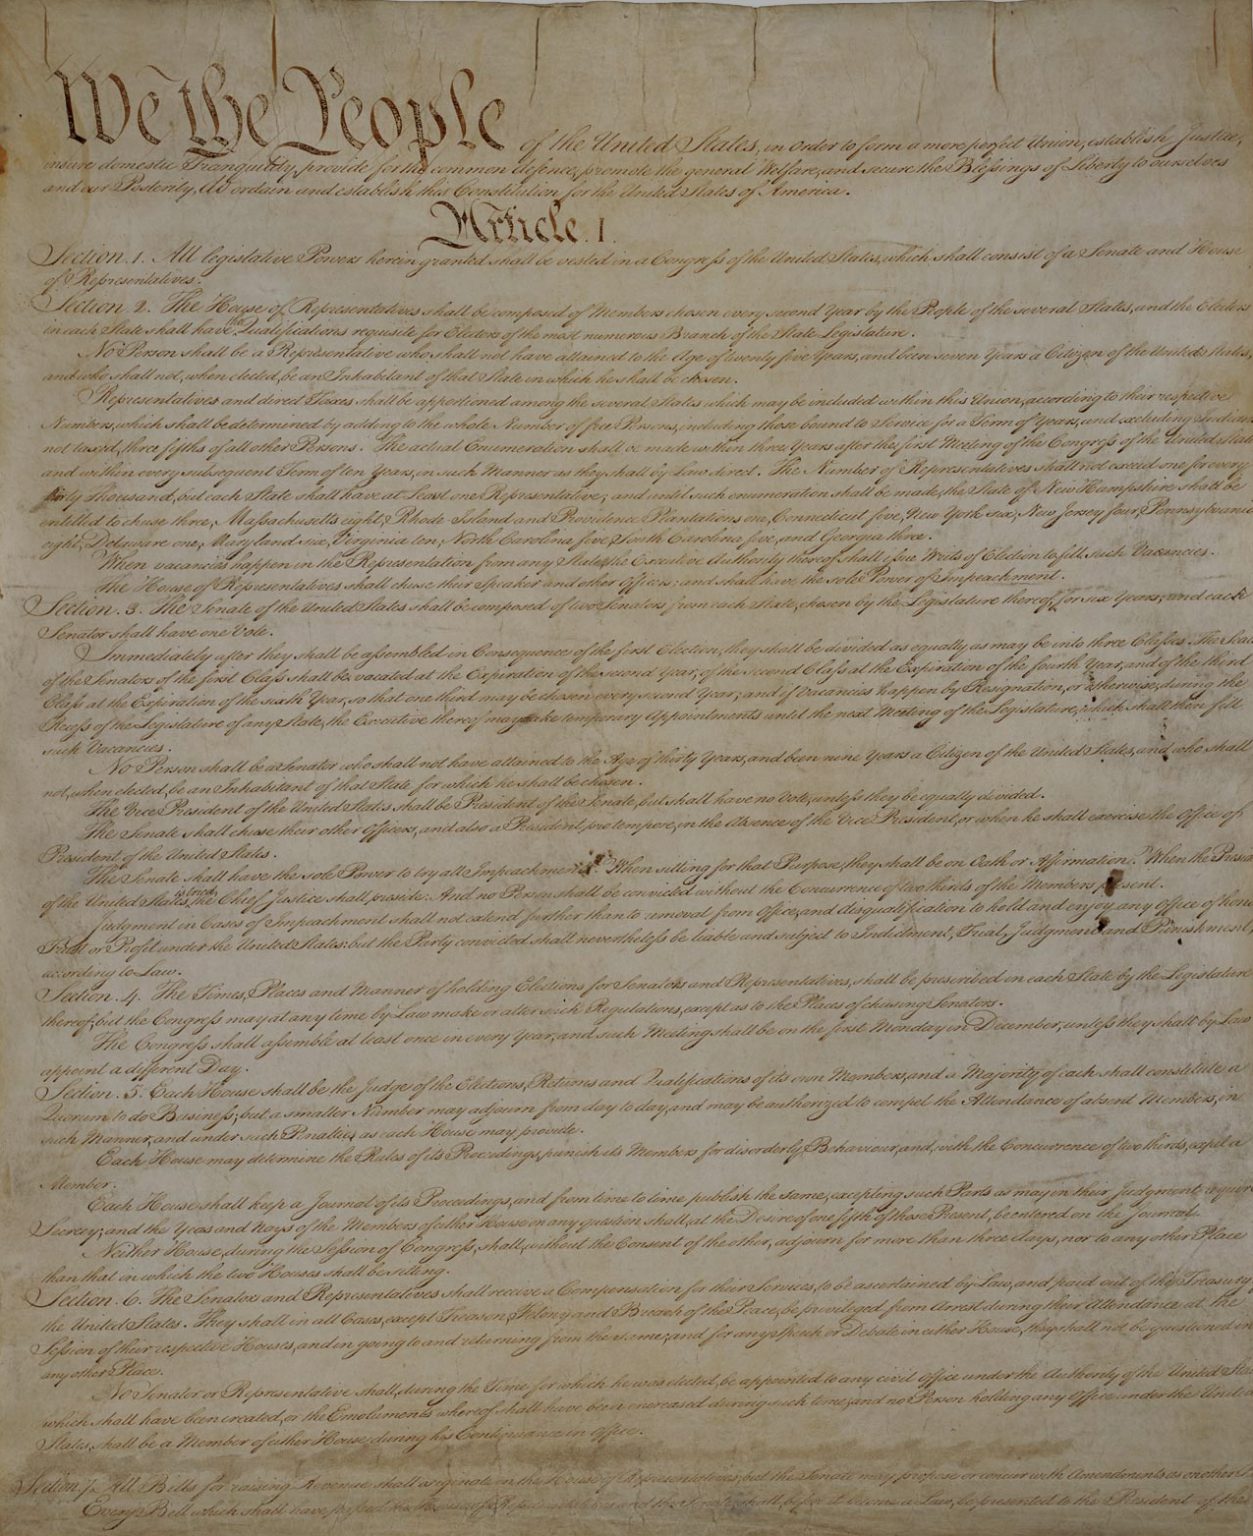 We the People of the United States, in Order to form a more perfect Union, establish Justice,
insure domestic Tranquility, provide for the common defence, promote the general Welfare, and secure the Blessings of Liberty to ourselves
and our Posterity, do ordain and establish this Constitution for the United States of America.
Article. I.
Section. 1. All legislative Powers herein granted shall be vested in a Congress of the United States, which shall consist of a Senate and House
of Representatives.
Section. 2. The House of Representatives shall be composed of Members chosen every second Year by the People of the several States, and the Electors
in each State shall have the Qualifications requisite for Electors of the most numerous Branch of the State Legislature.
No Person shall be a Representative who shall not have attained to the Age of twenty five Years, and been seven Years a Citizen of the United States,
and who shall not, when elected, be an Inhabitant of that State in which he shall be chosen.
Representatives and direct Taxes shall be apportioned among the several States which may be included within this Union, according to their respective
Numbers, which shall be determined by adding to the whole Number of free Persons, including those bound to Service for a Term of Years, and excluding Indians
not taxed, three fifths of all other Persons. The actual Enumeration shall be made within three Years after the first Meeting of the Congress of the United States,
and within every subsequent Term of ten Years, in such Manner as they shall by Law direct. The Number of Representatives shall not exceed one for every
thirty Thousand, but each State shall have at Least one Representative; and until such enumeration shall be made, the State of New Hampshire shall be
entitled to chuse three, Massachusetts eight, Rhode-Island and Providence Plantations one, Connecticut five, New-York six, New Jersey four, Pennsylvania
eight, Delaware one, Maryland six, Virginia ten, North Carolina five, South Carolina five, and Georgia three.
When vacancies happen in the Representation from any State, the Executive Authority thereof shall issue Writs of Election to fill such Vacancies.
The House of Representatives shall chuse their Speaker and other Officers; and shall have the sole Power of Impeachment.
Section. 3. The Senate of the United States shall be composed of two Senators from each State, chosen by the Legislature thereof, for six Years; and each
Senator shall have one Vote.
Immediately after they shall be assembled in Consequence of the first Election, they shall be divided as equally as may be into three Classes. The Seats
of the Senators of the first Class shall be vacated at the Expiration of the second Year, of the second Class at the Expiration of the fourth Year, and of the third
Class at the Expiration of the sixth Year, so that one third may be chosen every second Year; and if Vacancies happen by Resignation, or otherwise, during the
Recess of the Legislature of any State, the Executive thereof may make temporary Appointments until the next Meeting of the Legislature, which shall then fill
such Vacancies.
No Person shall be a Senator who shall not have attained to the Age of thirty Years, and been nine Years a Citizen of the United States, and who shall
not, when elected, be an Inhabitant of that State for which he shall be chosen.
The Vice President of the United States shall be President of the Senate, but shall have no Vote, unless they be equally divided.
The Senate shall chuse their other Officers, and also a President pro tempore, in the Absence of the Vice President, or when he shall exercise the Office of
President of the United States.
The Senate shall have the sole Power to try all Impeachments. When sitting for that Purpose, they shall be on Oath or Affirmation. When the President
of the United States is tried, the Chief Justice shall preside: And no Person shall be convicted without the Concurrence of two thirds of the Members present.
Judgment in Cases of Impeachment shall not extend further than to removal from Office, and disqualification to hold and enjoy any Office of honor,
Trust or Profit under the United States: but the Party convicted shall nevertheless be liable and subject to Indictment, Trial, Judgment and Punishment,
according to Law.
Section. 4. The Times, Places and Manner of holding Elections for Senators and Representatives, shall be prescribed in each State by the Legislature
thereof; but the Congress may at any time by Law make or alter such Regulations, except as to the Places of chusing Senators.
The Congress shall assemble at least once in every Year, and such Meeting shall be on the first Monday in December, unless they shall by Law
appoint a different Day.
Section. 5. Each House shall be the Judge of the Elections, Returns and Qualifications of its own Members, and a Majority of each shall constitute a
Quorum to do Business; but a smaller Number may adjourn from day to day, and may be authorized to compel the Attendance of absent Members, in
such Manner, and under such Penalties as each House may provide.
Each House may determine the Rules of its Proceedings, punish its Members for disorderly Behaviour, and, with the Concurrence of two thirds, expel a
Member.
Each House shall keep a Journal of its Proceedings, and from time to time publish the same, excepting such Parts as may in their Judgment require
Secrecy; and the Yeas and Nays of the Members of either House on any question shall, at the Desire of one fifth of those Present, be entered on the Journal.
Neither House, during the Session of Congress, shall, without the Consent of the other, adjourn for more than three days, nor to any other Place
than that in which the two Houses shall be sitting.
Section. 6. The Senators and Representatives shall receive a Compensation for their Services, to be ascertained by Law, and paid out of the Treasury of
the United States. They shall in all Cases, except Treason, Felony and Breach of the Peace, be privileged from Arrest during their Attendance at the
Session of their respective Houses, and in going to and returning from the same; and for any Speech or Debate in either House, they shall not be questioned in
any other Place.
No Senator or Representative shall, during the Time for which he was elected, be appointed to any civil Office under the Authority of the United States,
which shall have been created, or the Emoluments whereof shall have been increased during such time; and no Person holding any Office under the United
States, shall be a Member of either House during his Continuance in Office.
Section. 7. All Bills for raising Revenue shall originate in the House of Representatives; but the Senate may propose or concur with Amendments as on other
Every Bill which shall have passed the House of Representatives and the Senate, shall, before it become a Law, be presented to the President of the